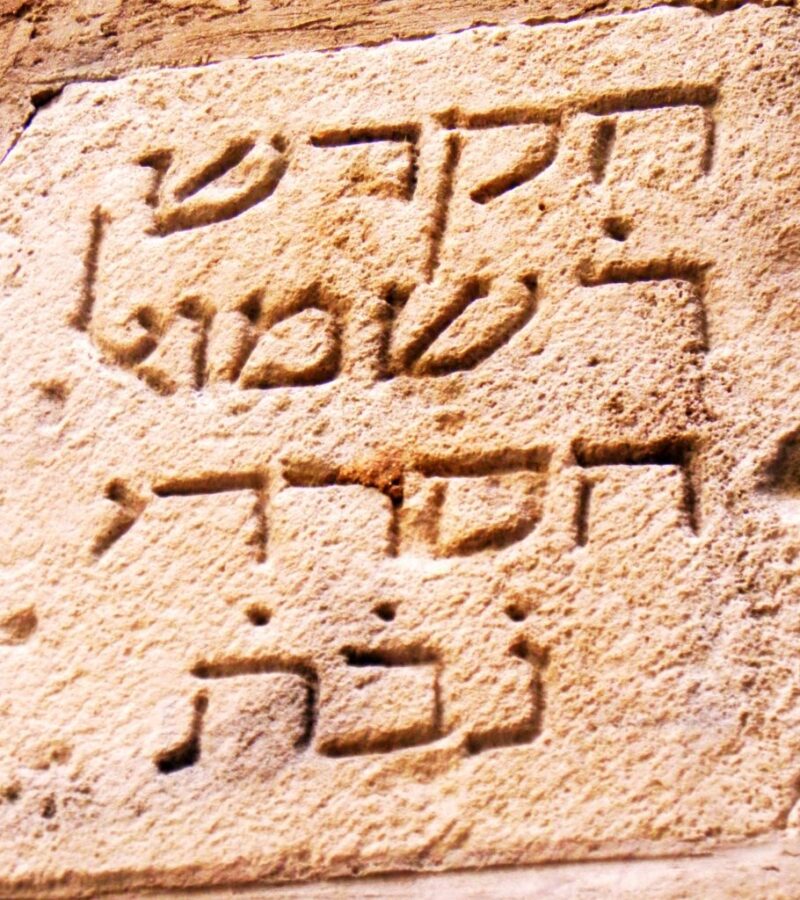 הקדש
ר̇ שמואל
הסרדי
נ̇ב̇ת̇